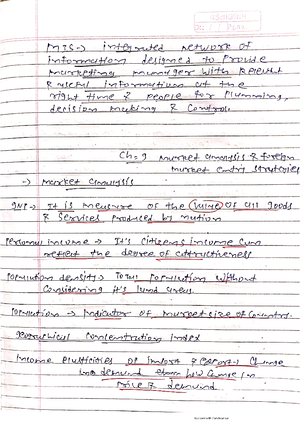 MIS → integrated network of
information designed to provide
marketing manager with relevent
& useful information at the
right time & people for planning,
decision making & control.
Ch=3 market analysis & foreign
market entry strategies
→ market analysis
GNP → It is measure of the value of all goods
& services produced by nation
Personal income → It's citizens income can
reflect the degree of attractiveness
Population density → Total population without
considering it's land areas
Population → Indicator of market size of country.
Geographical concentration index
Income elasticities of import & export → change
in demand when
price & demand